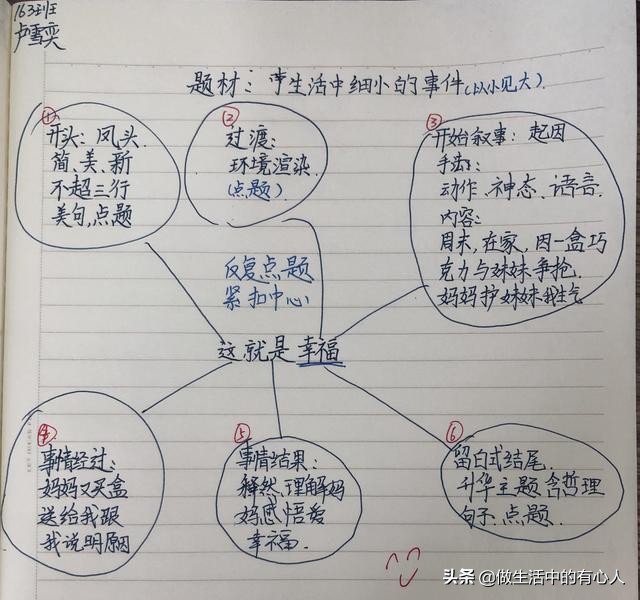 163班
卢雪奕
题材：生活中细小的事件(以小见大).
①
开头：凤头.
简、美、新
不超三行
美句,点题
②
过渡：
环境渲染.
(点题)
③
开始叙事：起因
手法：
动作、神态、语言.
内容：
周末,在家,因一盒巧
克力与妹妹争抢.
妈妈护妹妹我生气
反复点题
紧扣中心
这就是幸福
④
事情经过：
妈妈又买盒
送给我跟
我说明原因
⑤
事情结果：
释然,理解妈
妈感悟爱
幸福.
⑥
留白式结尾.
升华主题含哲理
句子.点题.
头条 @做生活中的有心人